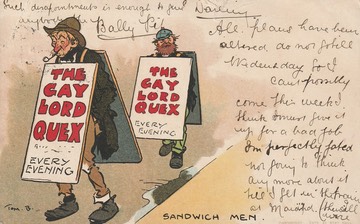 Such disappointment is enough to put
anybody
Bally Pip
Darling
All plans have been
altered do not
Wednesday for I
can't possibly
come this week I
think I must give it
up for a bad job
I'm perfectly
not going to think
any more about it
THE
GAY
LORD
QUEX
EVERY
EVENING
THE
GAY
LORD
QUEX
EVERY
EVENING
Tom B.
SANDWICH MEN.